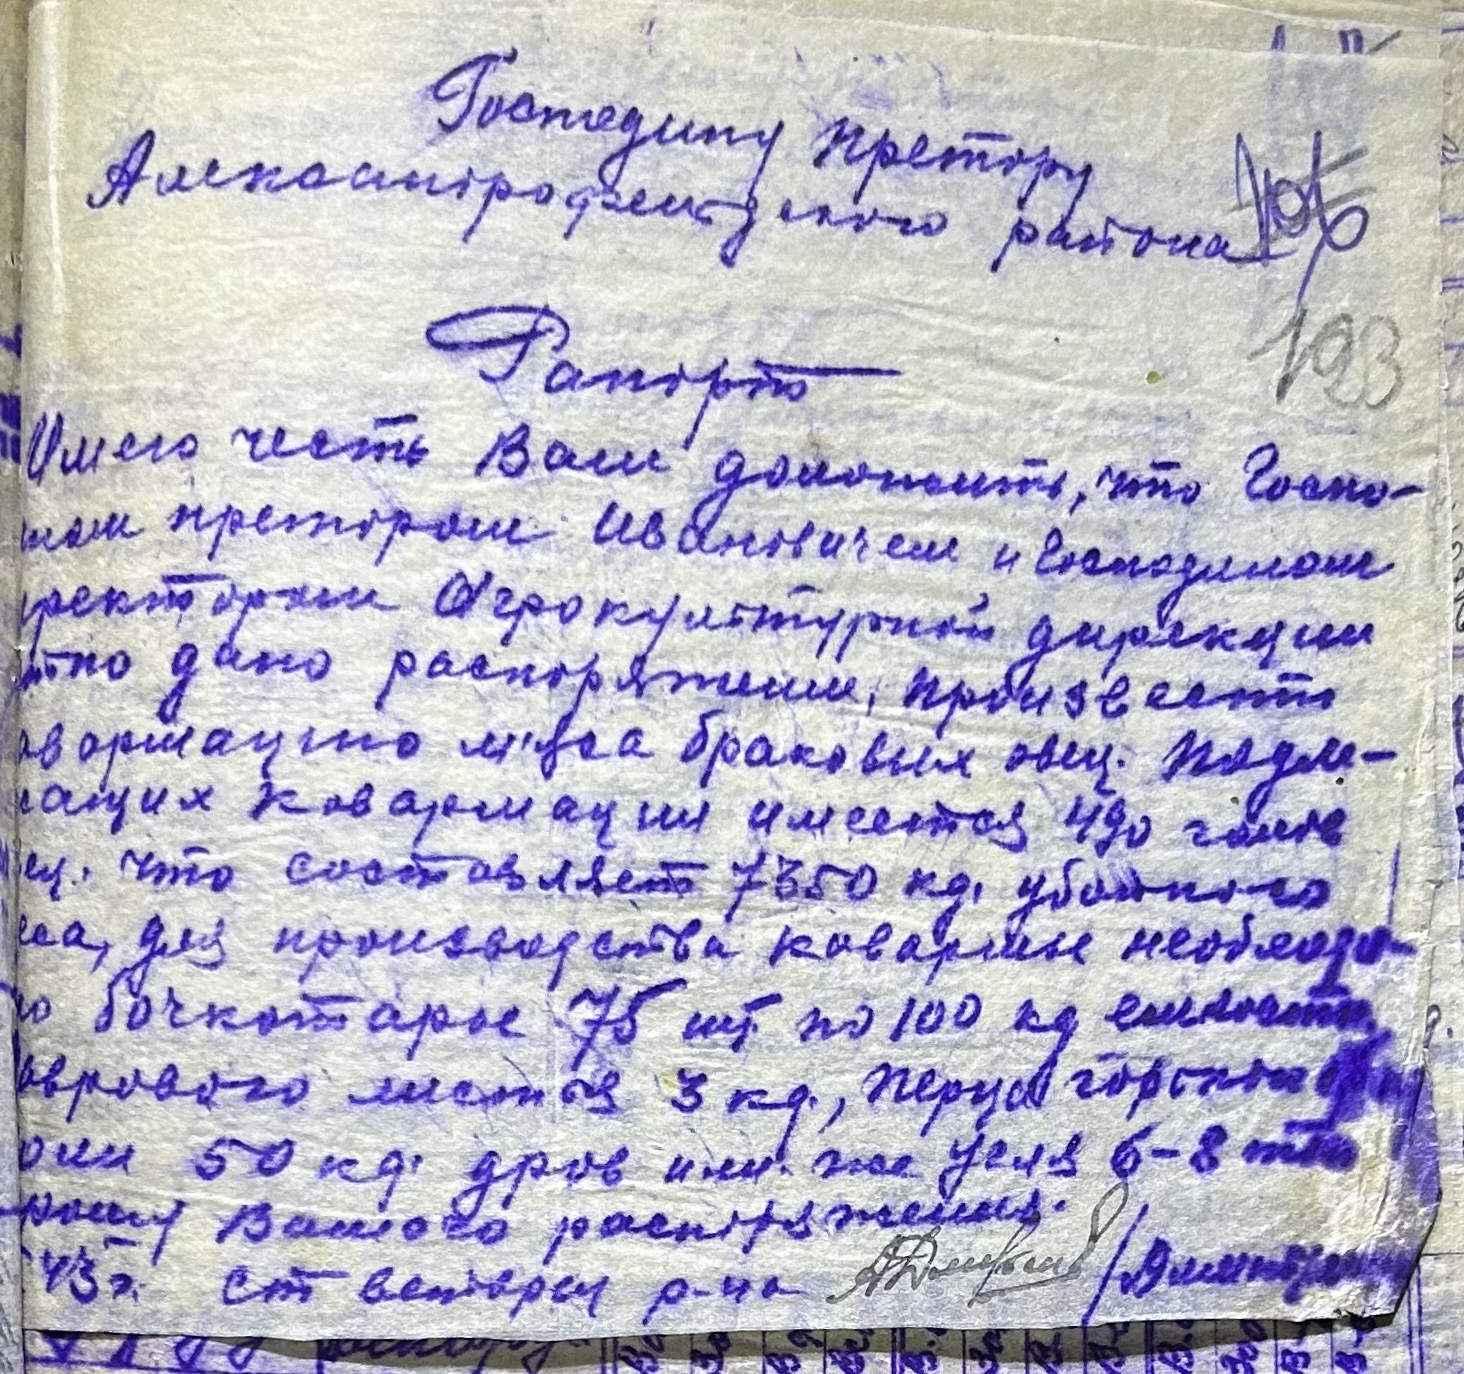 Господину Претору
Александрофельдского района
193
Рапорт
Имею честь Вам доложить, что Госпо-
ном претором Ивановичем и Господином
иректором Агрокультурной дирекции
тно дано распоряжение, произвести
овормацию мяса браковых овец. Подле-
жащих ковармации имеется 490 голов
ец. что составляет 7350 кг. убойного
са, для производства ковармы необходи-
о бочкотары 75 шт. по 100 кг емкости,
аврового листья 3 кг., перца горького
оли 50 кг. дров или же угля 6-8 тн
рошу Вашего распоряжения.
43 г. Ст ветврач р-на